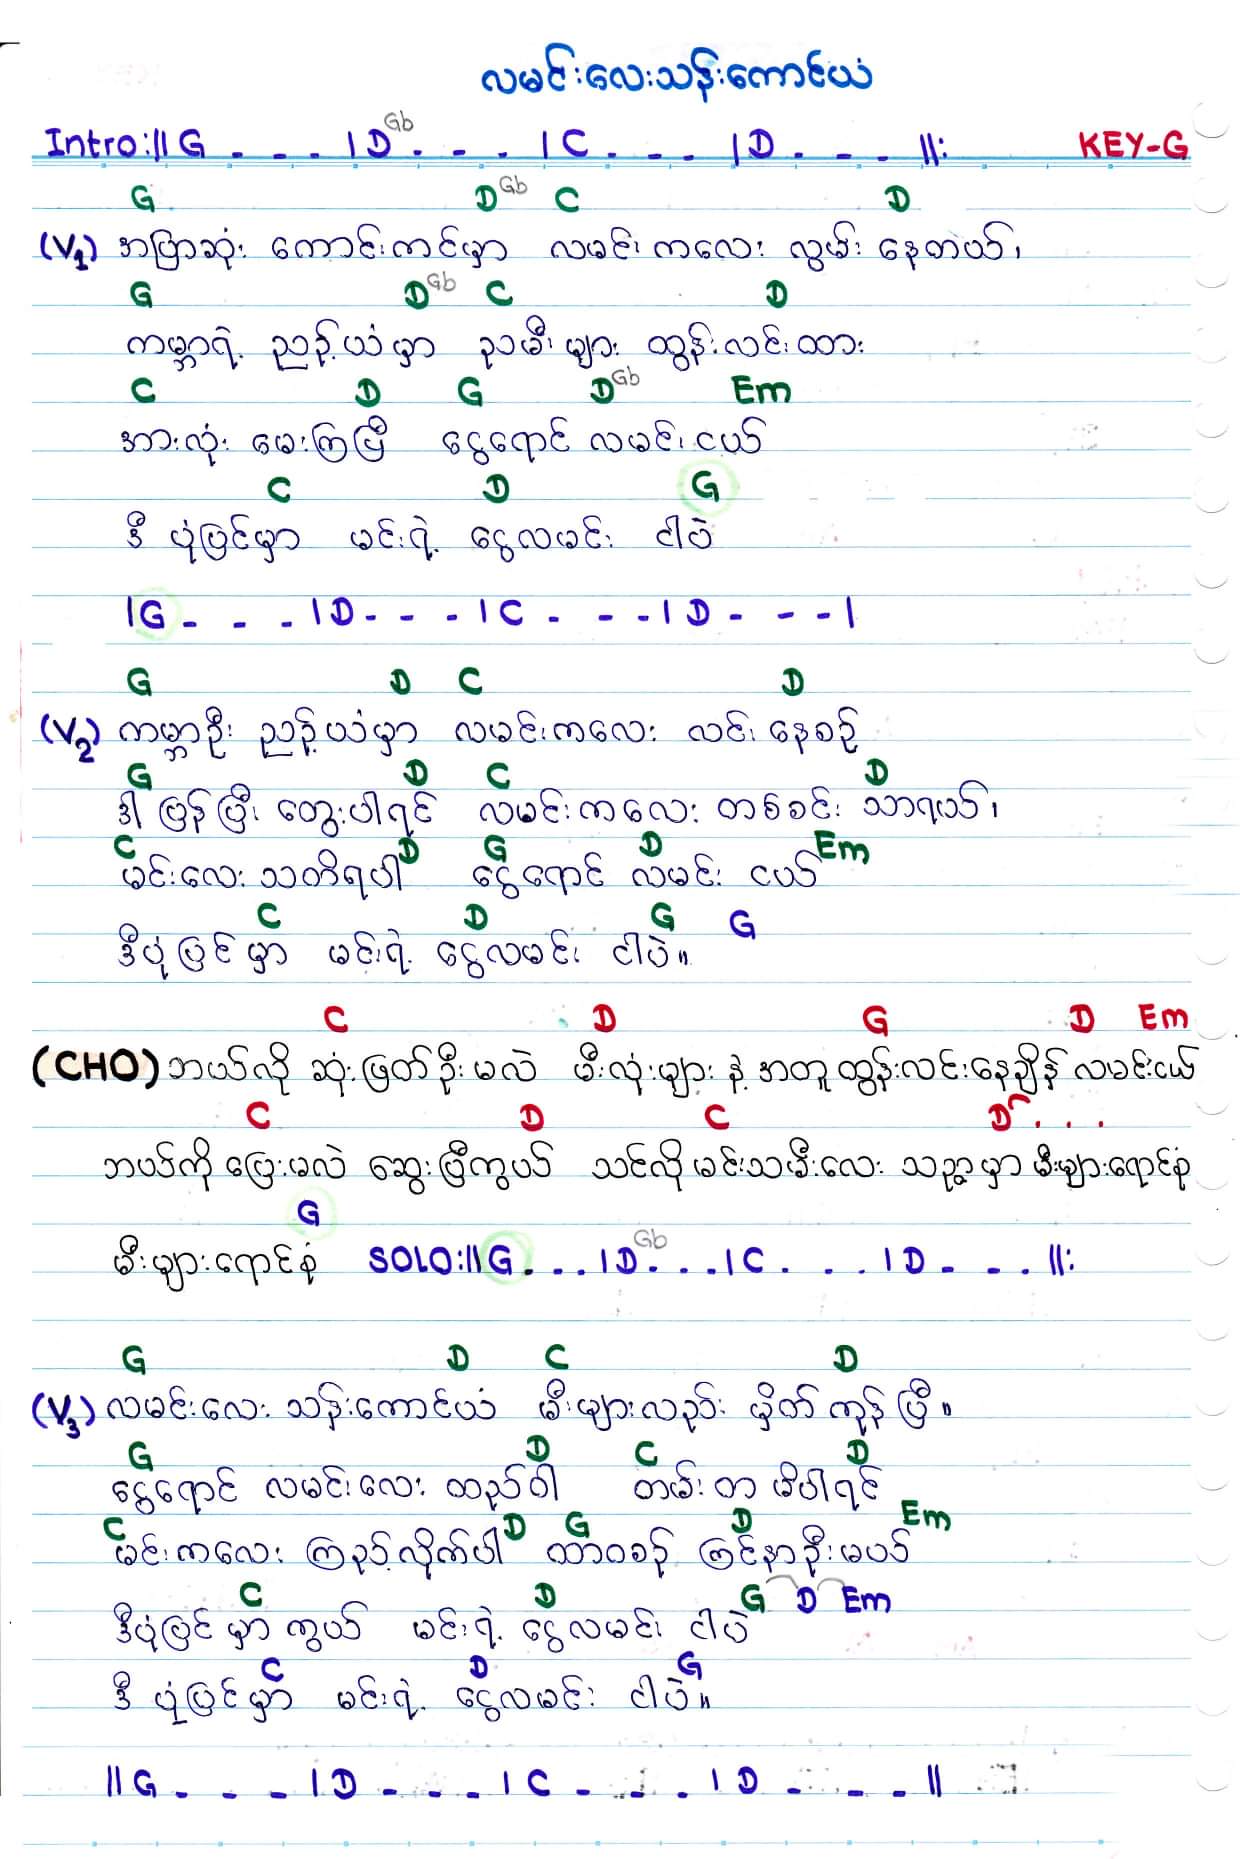 လမင်းလေးသန်းကောင်ယံ
Intro:|| G . - - . | D Gb . - - . | C . - - . | D . - - . ||:
KEY-G
G D Gb C D
(V1) အပြာဆုံး ကောင်းကင်မှာ လမင်းကလေး လွမ်း နေတယ်၊
G D Gb C D
ကမ္ဘာရဲ့ ညဉ့်ယံမှာ ညမီးများ ထွန်းလင်းထား
C D G D Gb Em
အားလုံး မေ့ကြပြီ ငွေရောင် လမင်းငယ်
C D G
ဒီ ပုံပြင်မှာ မင်းရဲ့ ငွေလမင်း ငါပဲ
|G - - - . | D - - - | C . - - - | D - - - - |
G D C D
(V2) ကမ္ဘာဦး ညဉ့်ယံမှာ လမင်းကလေး လင်း နေစဉ်
G D C D
ဒါ ပြန်ပြီး တွေးပါရင် လမင်းကလေး တစ်စင်း သာရယ်၊
C D G D Em
မင်းလေး သတိရပါ ငွေရောင် လမင်း ငယ်
C D G G
ဒီပုံပြင်မှာ မင်းရဲ့ ငွေလမင်း ငါပဲ။
C D G D Em
(CHO) ဘယ်လို ဆုံးဖြတ်ဦးမလဲ မီးလုံးများ နဲ့ အတူထွန်းလင်းနေချိန် လမင်းငယ်
C D C D . . .
ဘယ်ကို ပြေးမလဲ ဆွေးပြီကွယ် သင်လို မင်းသမီးလေး သညာမှာ မီးများရောင်စုံ
G
မီးများရောင်စုံ SOLO:|| G . . . | D Gb . . . | C . . . | D . - - . ||:
G D C D
(V3) လမင်းလေး သန်းကောင်ယံ မီးများလည်း မှိတ်ကုန်ပြီ။
G D C D
ငွေရောင် လမင်းလေး ထည်ဝါ တမ်းတ မိပါရင်
C D G D Em
မင်းကလေး ကြည့်လိုက်ပါ ထာဝစဉ် ကြင်နာဦးမယ်
C D G D Em
ဒီပုံပြင်မှာကွယ် မင်းရဲ့ ငွေလမင်း ငါပဲ
C D G
ဒီ ပုံပြင်မှာ မင်းရဲ့ ငွေလမင်း ငါပဲ။
|| G . - - - | D - - - . | C - . - . | D - . - - ||